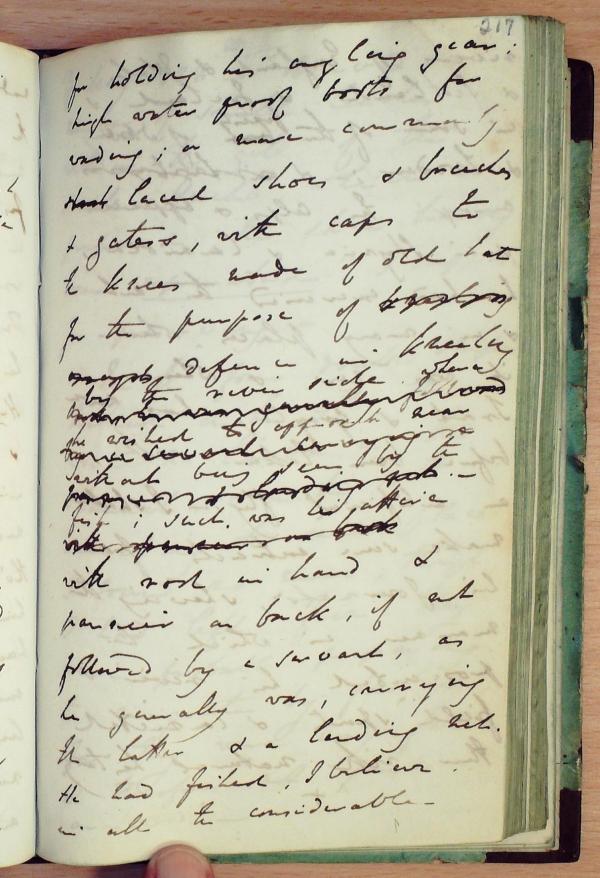 217
for holding his angling gear;
high water proof boots for
wading; or more commonly
laced shoes & breeches
& gaters, with caps to
the knees made of old hat
for the purpose of
defence in kneeling
by the river side when
he wished to approach near
without being seen by the
fish; such was his attire
with rod in hand &
pannier on back, if not
followed by a servant, as
he generally was, carrying
the latter & a landing net.
He had fished, I believe,
in all the considerable